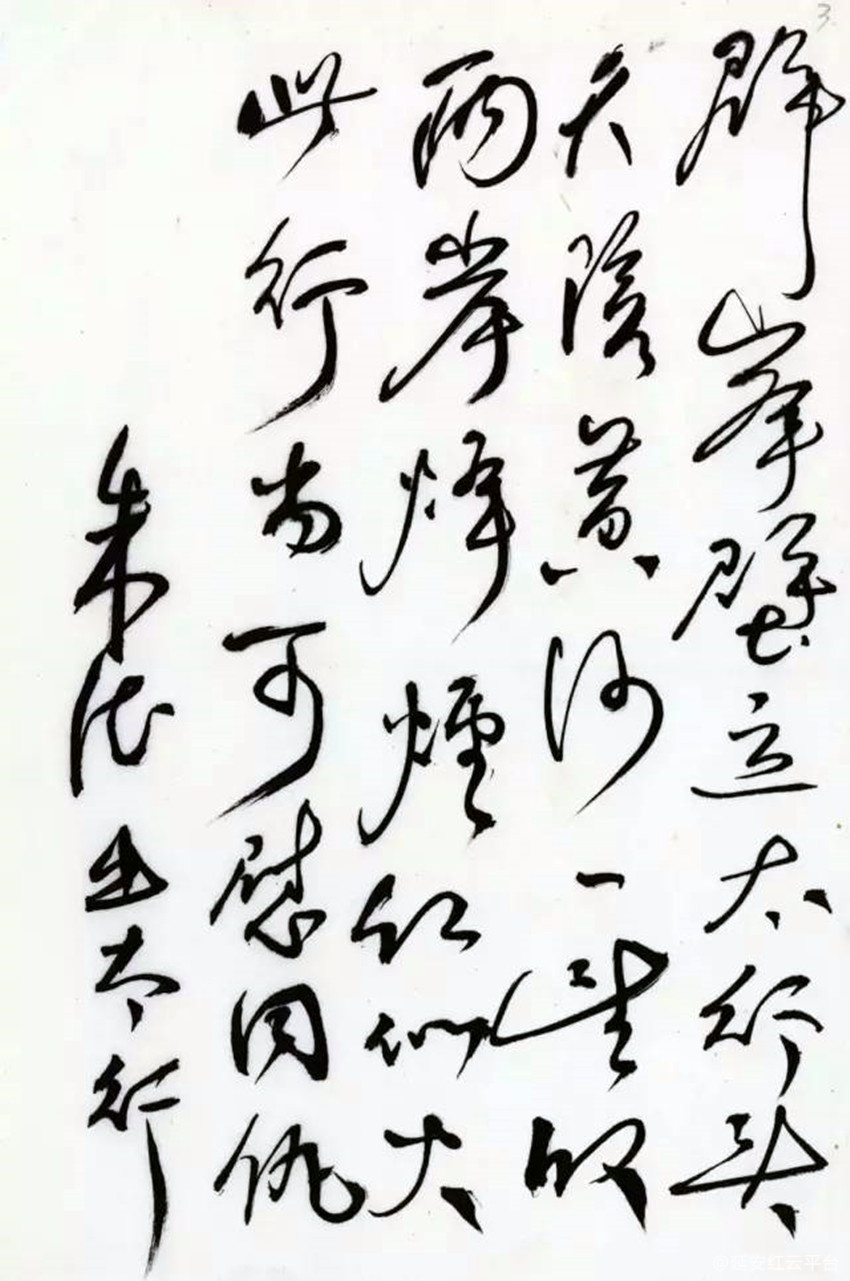 3
群峯壁立太行头
天险黄河一望收
两岸烽煙红似火
此行当可慰同仇
朱德出太行
@延安红云平台